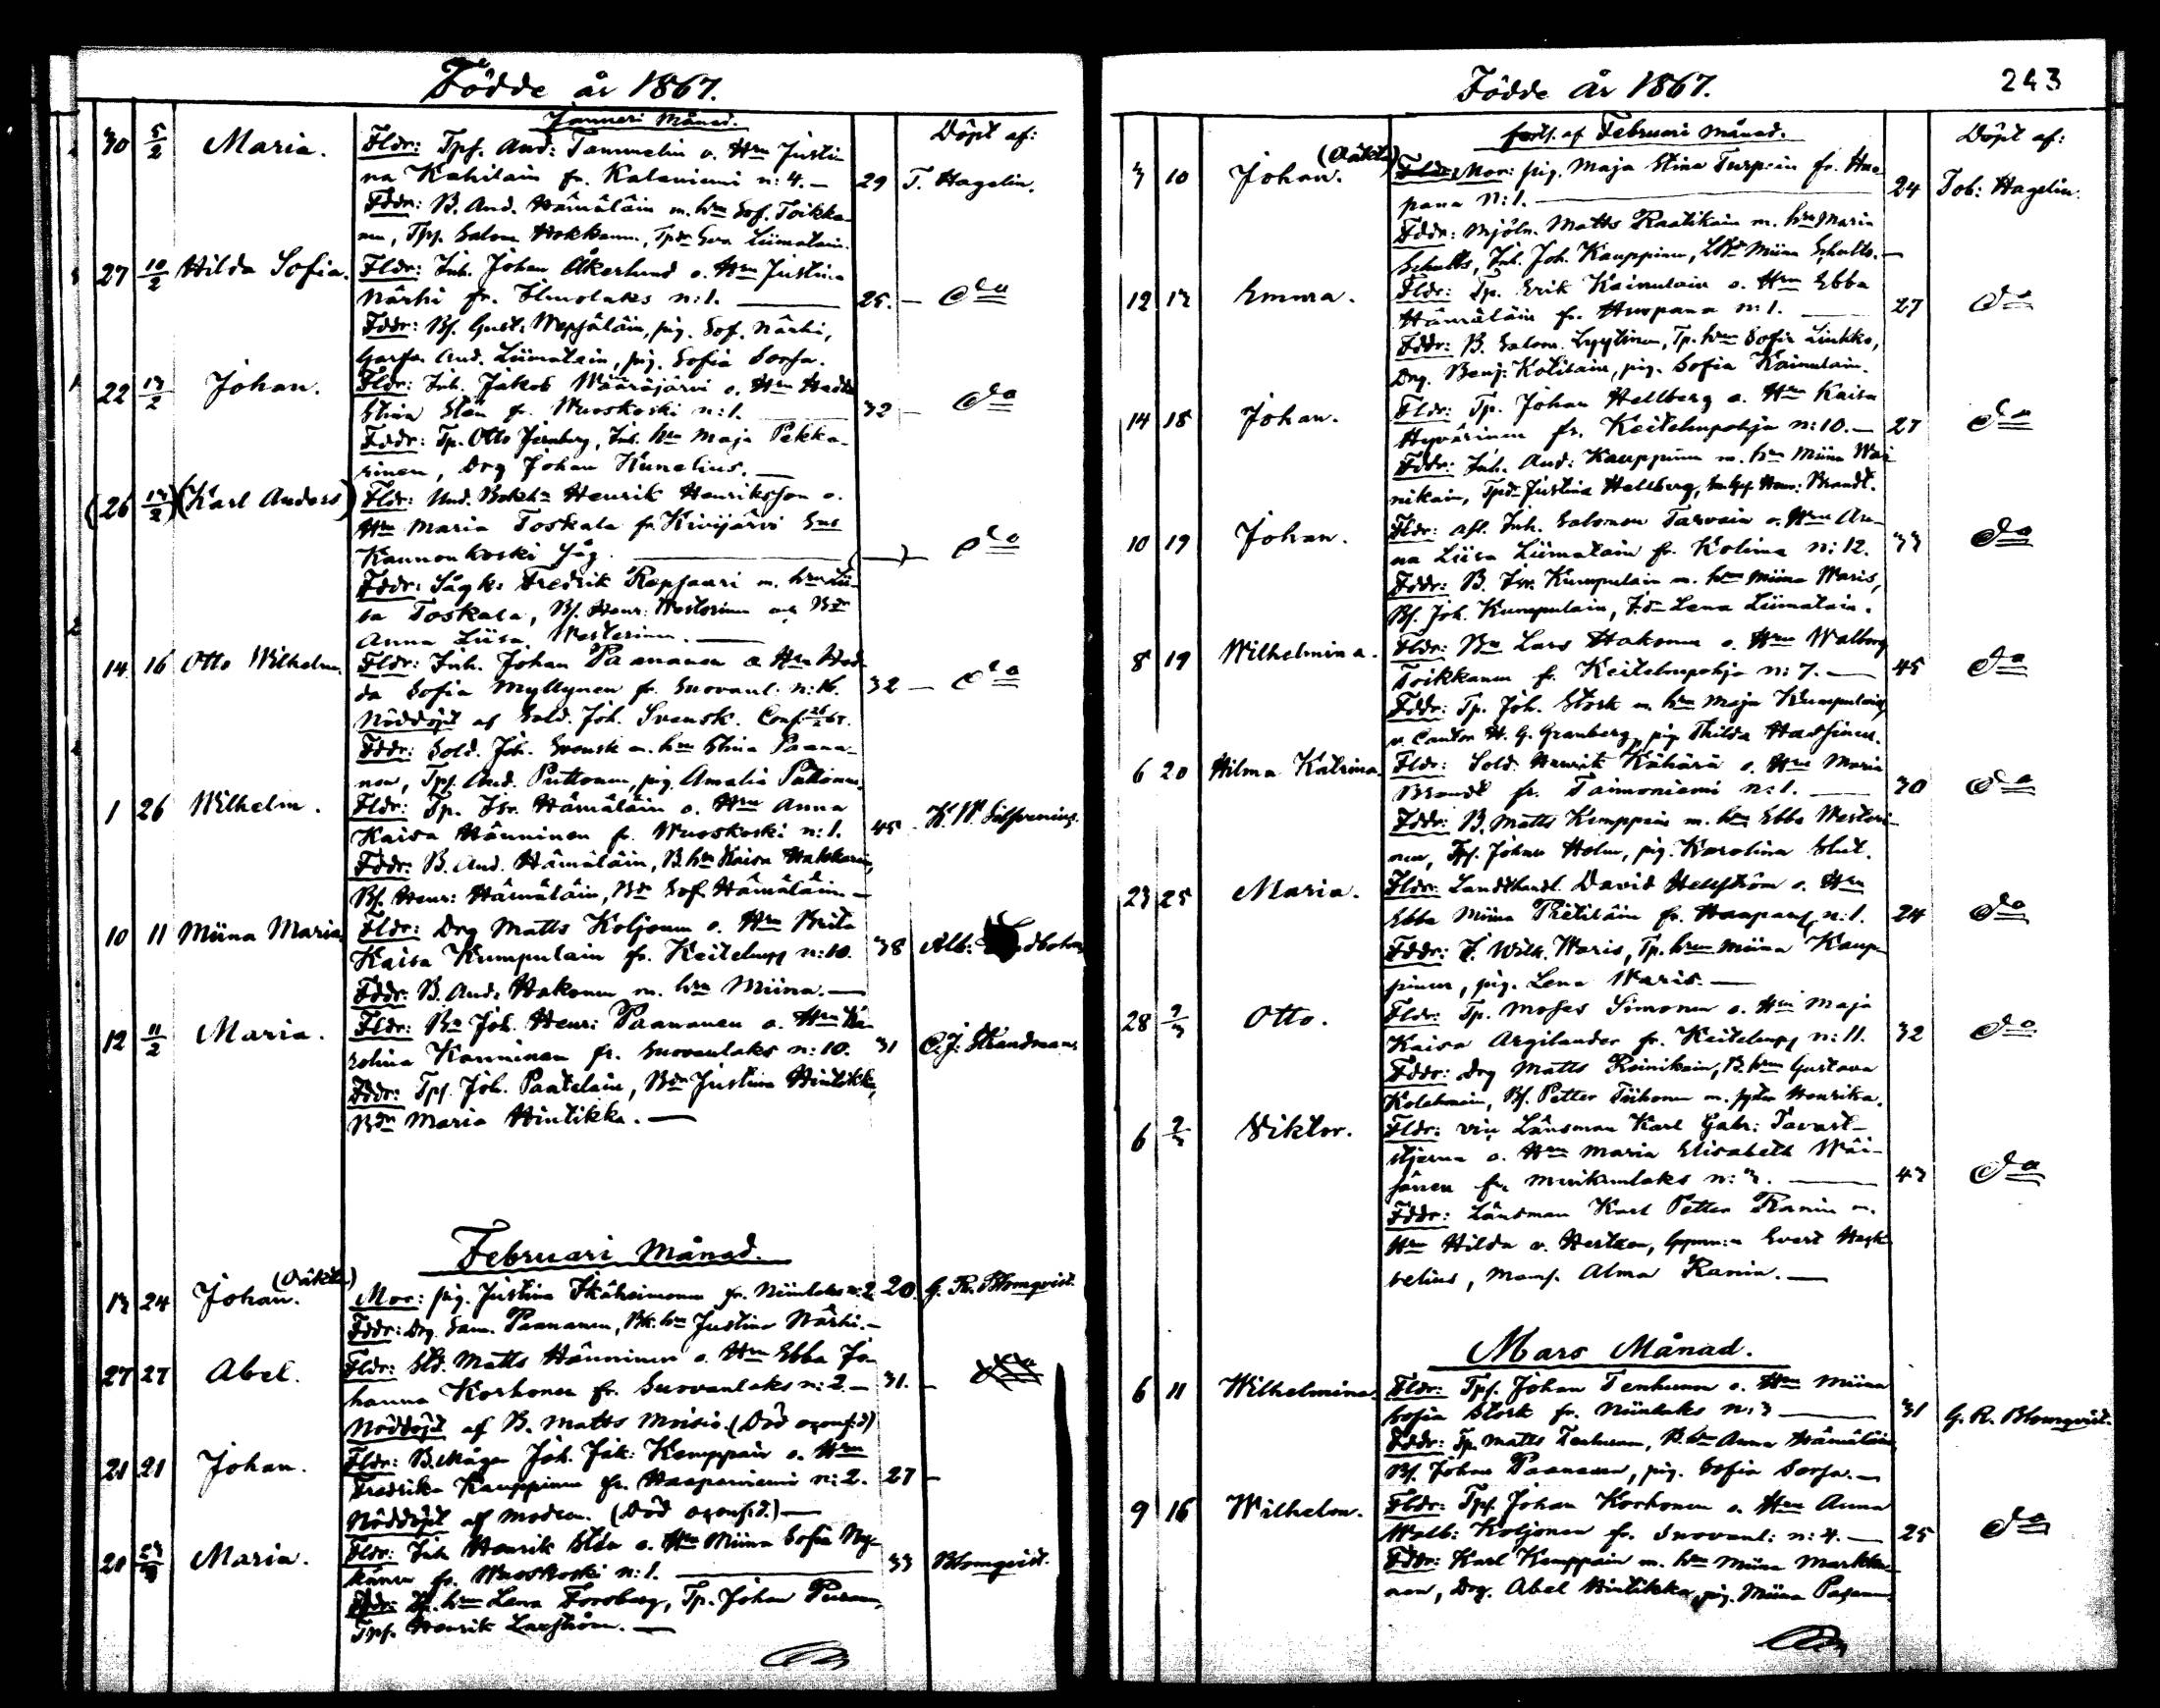 Födde år 1867.
Januari Månad.
Döpt af:
30 5/2 Maria. Fldr: Tpf. And: Tammelin o. Hru Justi-
na Kahilain fr. Kalaniemi n:4. — 29 T. Hagelin.
Fddr: B. And. Hämäläin m. hru Sof. Toikka-
nen, Tpf. Salom Hokkanen, Tpdr Eva Liimatain.
27 10/2 Hilda Sofia. Fldr: Inh. Johan Åkerlund o. Hru Justina
Närhi fr. Ilmolaks n:1. — 25. — do
Fddr: Bf. Gust: Wepsäläin, pig. Sof. Närhi,
And. Liimatain, pig. Sofia Sorsa.
22 13/2 Johan. Fldr: Inh. Jakob Wääräjärvi o. Hru Hedda
Stina Sten fr. Wuoskoski n:1. 32 — do
Fddr: Tp. Otto Jernberg, Inh. hru Maja Pekka-
rinen, Drg Johan Kunelius. —
(26 13/2) (Karl Anders) Fldr: Und. Bokh: Henrik Henriksson o.
Hru Maria Toskala fr. Kivijärvi Sn
Kannonkoski Såg. — do
Fddr: Sågk: Fredrik Repsaari m. hru Lii-
sa Toskala, Bf. Henr: Westerinen och Bdr
Anna Liisa Westerinen. —
14 16 Otto Wilhelm. Fldr: Inh. Johan Paananen o Hru Hed-
da Sofia Myllynen fr. Suovanl. n:16. 32 — do
Nöddöpt af Sold. Joh. Svensk. Conf.
Fddr: Sold. Joh. Svensk m. hru Stina Paana-
nen, Tpf. And. Puttonen, pig Amalia Puttonen.
1 26 Wilhelm. Fldr: Tp. Isr. Hämäläin o. Hru Anna
Kaisa Hänninen fr. Wuoskoski n:1. 45 K. W. Silfvenius.
Fddr: B. And. Hämäläin, B. hru Kaisa Hakkarain,
Bf. Henr: Hämäläin, Bdr Sof. Hämäläin. —
10 11 Miina Maria. Fldr: Drg Matts Koljonen o. Hru Brita
Kaisa Kumpulain fr. Keitelepp n:10. 38 Alb:
Fddr: B. And. Hakonen m. hru Miina. —
12 11/2 Maria. Fldr: Bn Joh. Henr: Paananen o. Hru Ka-
rolina Kanninen fr. Suovanlaks n:10. 31 C. J. Strandman
Fddr: Tpf. Joh. Paatelain, Bdr Justina Hintikka,
Bdr Maria Hintikka. —
Februari Månad.
13 24 Johan. (Oäkta) Mor: pig. Justina Ikäheimonen fr. Niinilaks n:2. 20. G. R. Blomqvist.
Fddr: Drg. Sam. Paananen, Bk. hru Justina Närhi. —
27 27 Abel. Fldr: Sld. Matts Hänninen o. Hru Ebba Jo-
hanna Korhonen fr. Suovanlaks n:2. — 31. — do
Nöddöpt af B. Matts Moisio. (Död oconf:d)
21 21 Johan. Fldr: B. Måger Joh. Jak: Kemppain o. Hru
Fredrika Kauppinen fr. Haapaniemi n:2. 27 —
Nöddöpt af modren. (Död oconf:d.) —
20 Maria. Fldr: Inh. Henrik Stén o. Hru Miina Sofia Ny-
känen fr. Wuoskoski n:1. — 33 Blomqvist.
Fddr: hru Lena Forsberg, Tp. Johan Puranen,
Tpf. Henrik Laxström. —
243
Födde år 1867.
forts. af Februari månad.
Döpt af:
3 10 Johan. (Oäkta) Mor: pig. Maja Stina Turpein fr. Haa-
pana N:1. — 24 Tob: Hagelin.
Fddr: Mjöln. Matts Raatikain m. hru Maria
Schults, Inh. Joh. Kauppinen, Miina Schults. —
12 17 Emma. Fldr: Tp. Erik Kainulain o. Hru Ebba
Hämäläin fr. Haapana n:1. — 27 do
Fddr: B. Salom. Lyytinen, Tp. hru Sofia Liukko,
Drg. Benj: Kotilain, pig. Sofia Kainulain.
14 18 Johan. Fldr: Tp. Johan Hellberg o. Hru Kaisa
Hyvärinen fr. Keitelepohja n:10. — 27 do
Fddr: Inh. And: Kauppinen m. hru Miina Wai-
nikain, Tpdr Justina Hellberg, Henr: Brandt.
10 19 Johan. Fldr: afl. Inh. Salomon Tarvain o. Hru An-
na Liisa Liimatain fr. Kolima n:12. 33 do
Fddr: B. Isr. Kumpulain m. hru Miina Waris,
Bf. Joh. Kumpulain, Lena Liimatain.
8 19 Wilhelmina. Fldr: Bn Lars Hakonen o. Hru Walborg
Toikkanen fr. Keitelepohja n:7. — 45 do
Fddr: Tp. Joh. Stork m. hru Maja Kumpulain,
v. Cantor H. G. Granberg, pig. Thilda Hassinen.
6 20 Hilma Katrina. Fldr: Sold. Henrik Kähärä o. Hru Maria
Brandt fr. Taimoniemi n:1. — 30 do
Fddr: B. Matts Kemppain m. hru Ebba Westeri-
nen, Tpf. Johan Holm, pig. Karolina Slut.
23 25 Maria. Fldr: Landthandl. David Hellström o. Hru
Ebba Miina Pietiläin fr. Haapan n:1. 24 do
Fddr: Wilh. Waris, Tp. hru Miina Kaup-
pinen, pig. Lena Waris. —
28 2/3 Otto. Fldr: Tp. Moses Simonen o. Hru Maja
Kaisa Argilander fr. Keitelepp n:11. 32 do
Fddr: Drg Matts Roinikain, B. hru Gustava
Kolehmain, Bf. Petter Tiihonen m. syster Henrika.
6 2/3 Viktor. Fldr: vice Länsman Karl Gabr: Tavast-
stjerna o. Hru Maria Elisabeth Wäi-
sänen fr. Muikunlaks n:3. — 43 do
Fddr: Länsman Karl Petter Ranin m.
Hru Hilda v. Hertzen, Evert
velius, Mams. Alma Ranin. —
Mars Månad.
6 11 Wilhelmina. Fldr: Tpf. Johan Tenhunen o. Hru Miina
Sofia Stork fr. Niinilaks n:3 — 31 G. R. Blomqvist.
Fddr: Tp. Matts Tenhunen, B. hru Anna Hämäläin,
Bf. Johan Paananen, pig. Sofia Sorsa. —
9 16 Wilhelm. Fldr: Tpf. Johan Korhonen o. Hru Anna
Walb: Koljonen fr. Suovanl: n:4. — 25 do
Fddr: Karl Kemppain m. hru Miina Markka-
nen, Drg. Abel Hintikka, pig. Miina Pasanen.